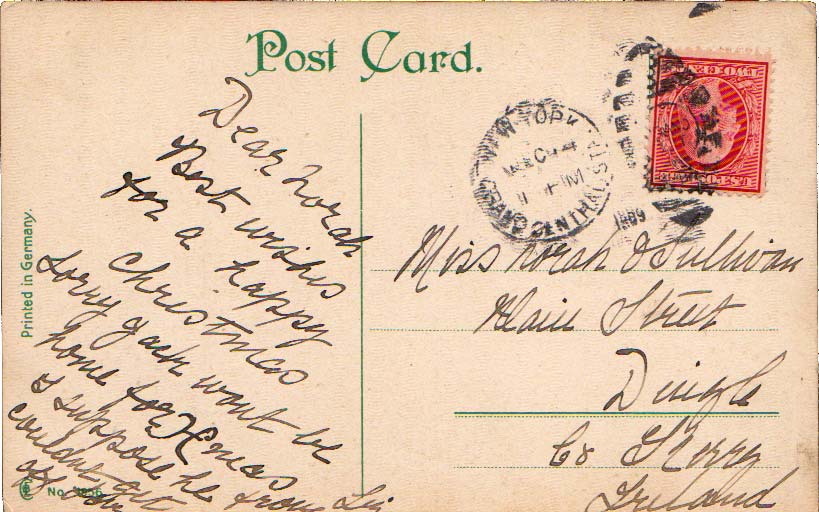 Post Card.
NEW YORK
DEC 4
GRAND CENTRAL STA.
1909
Printed in Germany.
Dear Norah
Best wishes
for a happy
Christmas
Sorry Jack wont be
home for Xmas
I suppose he
couldnt get
off
from
Miss Norah O Sullivan
Main Street
Dingle
Co Kerry
Ireland
No.